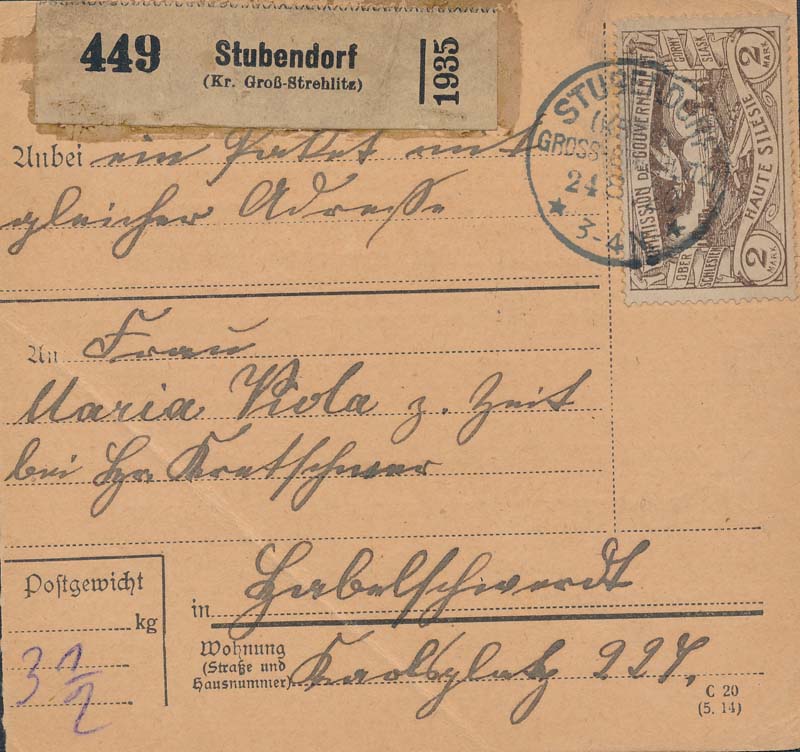 449 Stubendorf
(Kr. Groß-Strehlitz)
1935
Anbei ein Paket mit
gleicher Adresse
An Frau
Maria Viola z. Zeit
bei Hr. Kretschmer
in Habelschwerdt
Wohnung
(Straße und
Hausnummer) Karlsplatz 227.
Postgewicht
kg
3 1/2
C 20
(5. 14)
STUBENDORF
GROSS
24
3-4 N
COMMISSION DE GOUVERNEMENT
HAUTE SILESIE
OBER
SCHLESIEN
GORNY
ŚLĄSK
2 MARK
2 MARK